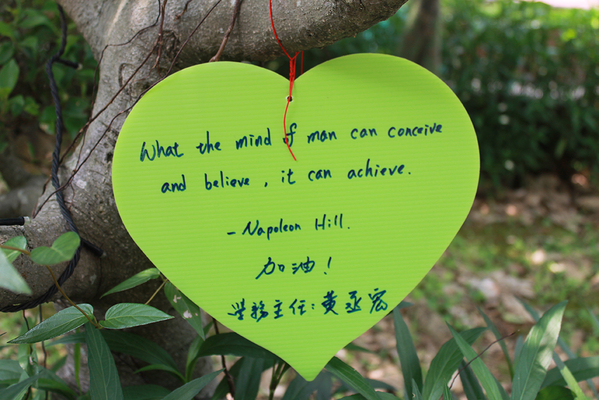 What the mind of man can conceive
and believe , it can achieve.
- Napoleon Hill.
加油!
学務主任:黄丞宏